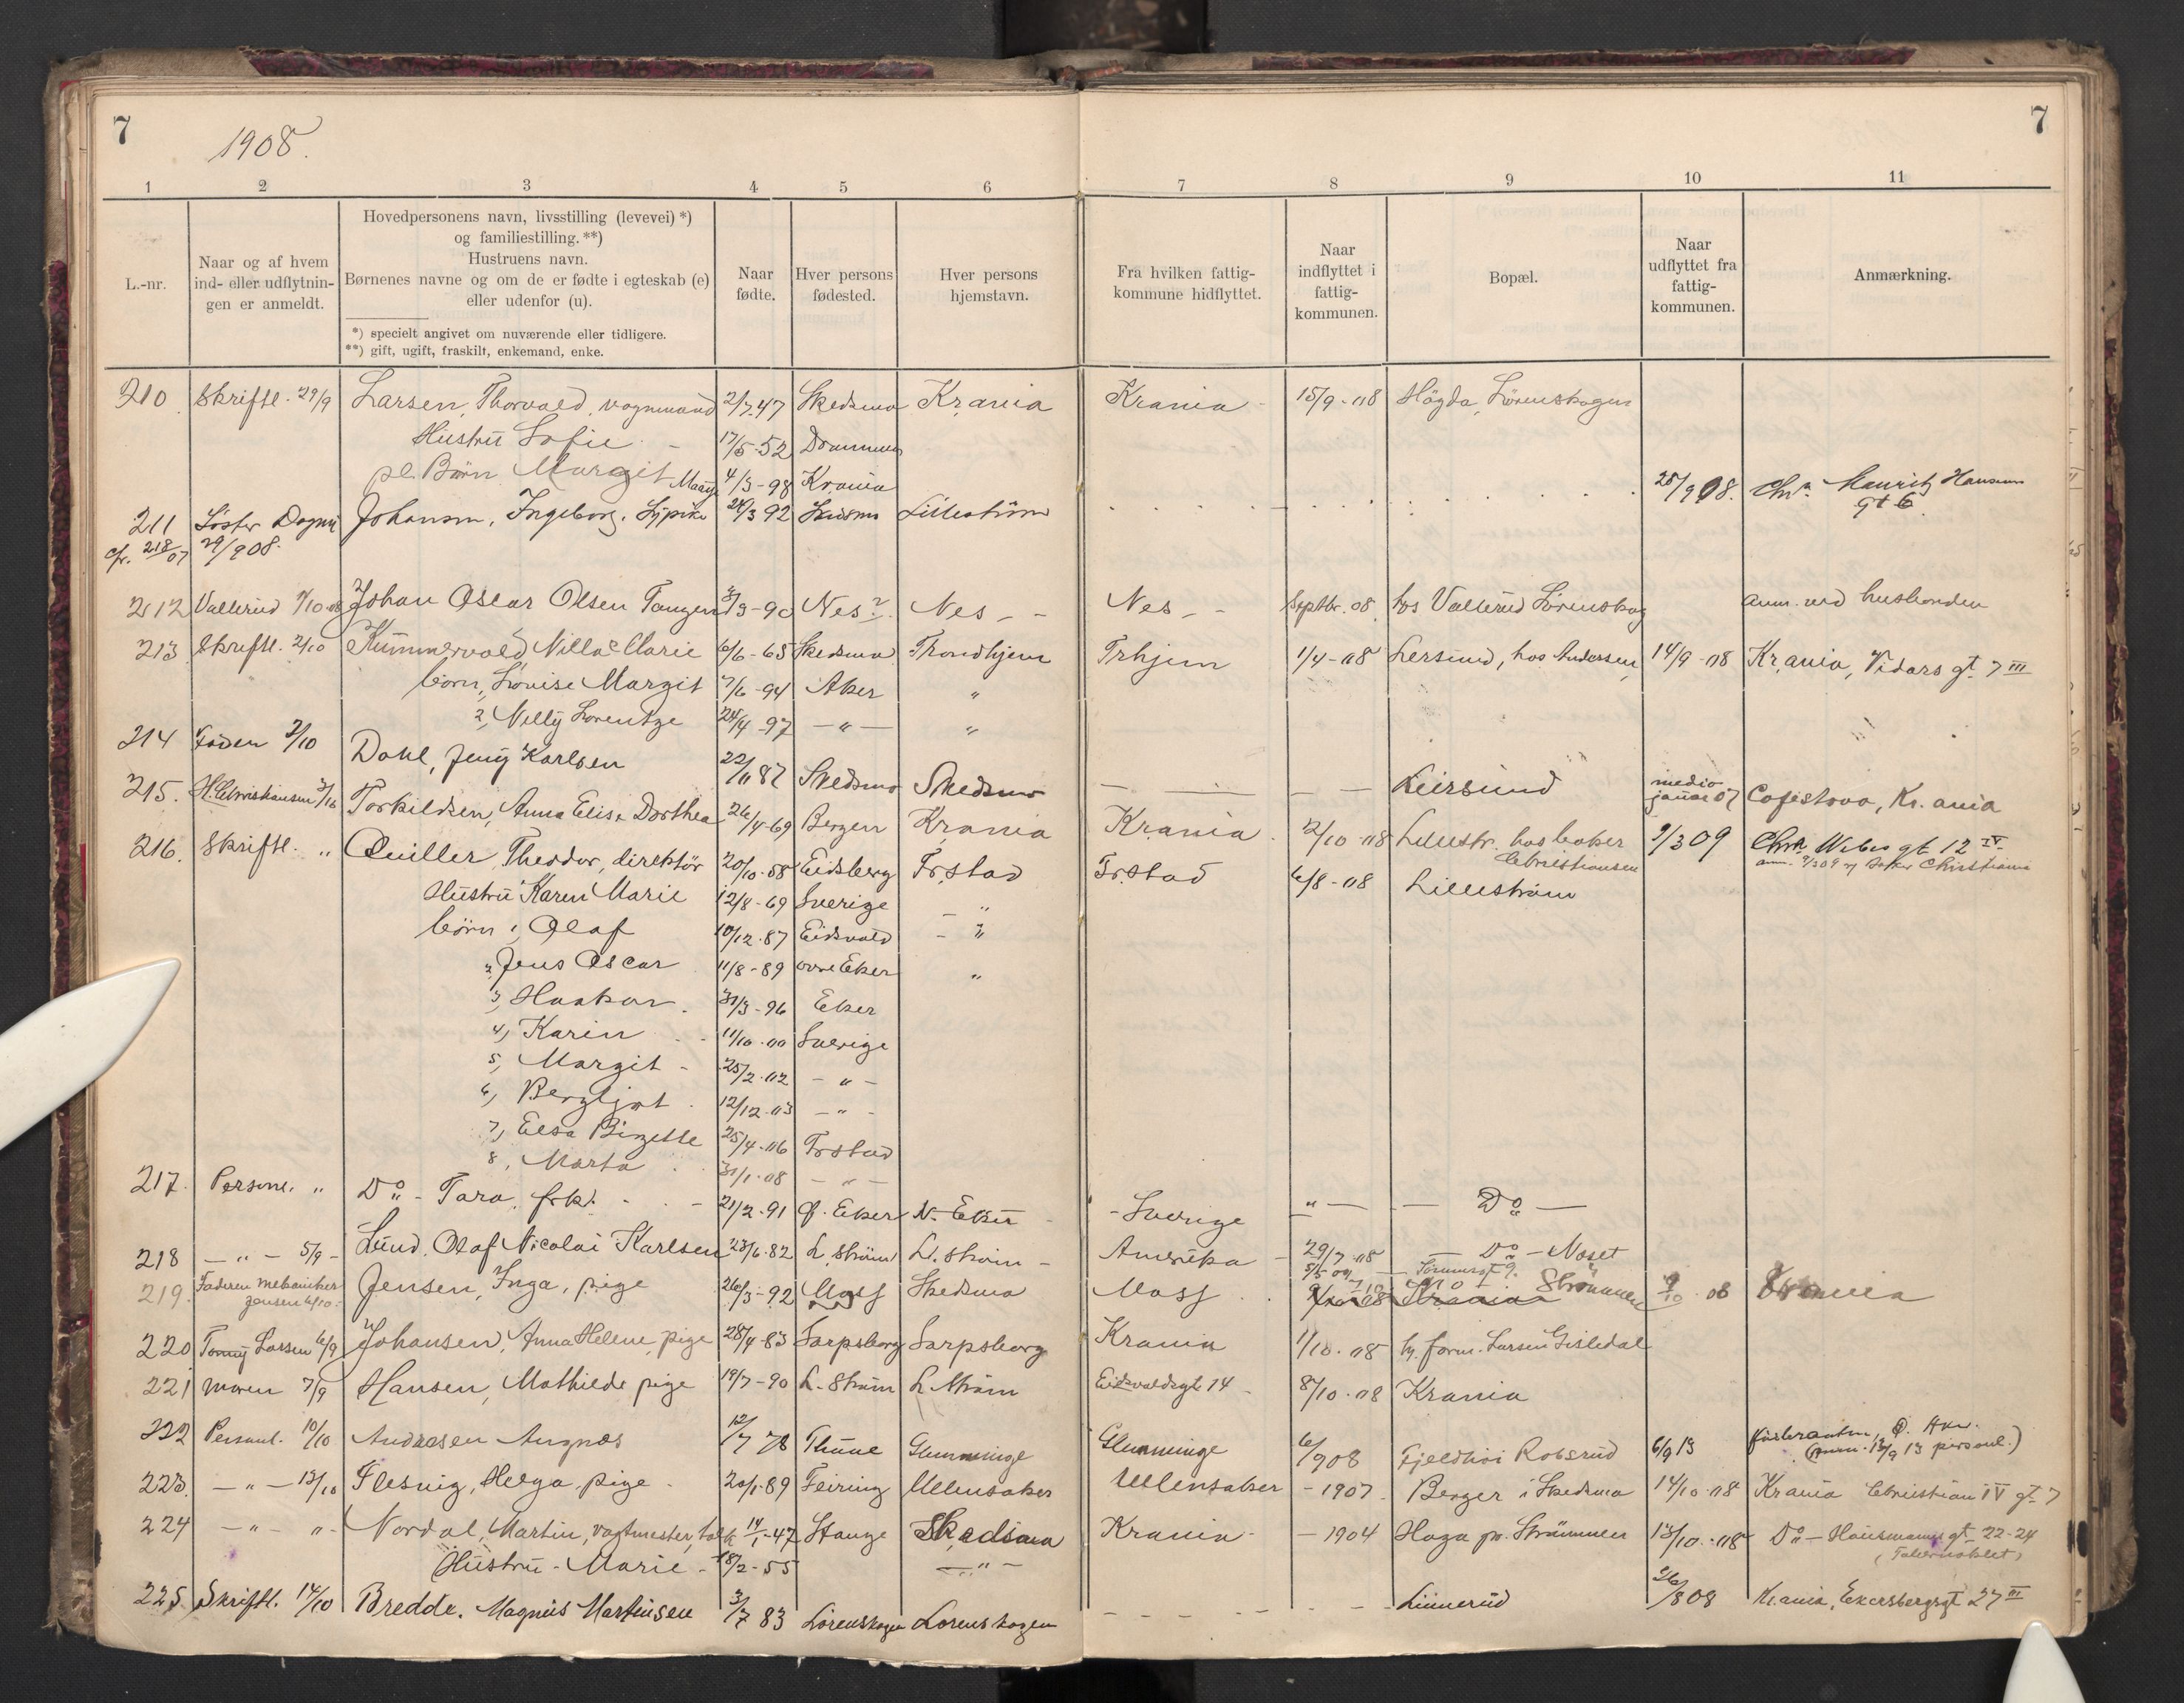 7
7
1908.
1 2 3 4 5 6 7 8 9 10 11
L.-nr.
Naar og af hvem
ind- eller udflytnin-
gen er anmeldt.
Hovedpersonens navn, livsstilling (levevei) *)
og familiestilling. **)
Hustruens navn.
Børnenes navne og om de er fødte i egteskab (e)
eller udenfor (u).
*) specielt angivet om nuværende eller tidligere.
**) gift, ugift, fraskilt, enkemand, enke.
Naar
fødte.
Hver persons
fødested.
Hver persons
hjemstavn.
Fra hvilken fattig-
kommune hidflyttet.
Naar
indflyttet i
fattig-
kommunen.
Bopæl.
Naar
udflyttet fra
fattig-
kommunen.
Anmærkning.
210 Skriftl. 29/9 Larsen, Thorvald, vognmand 2/7-47 Skedsmo Kr.ania Krania 15/9-08 Høgda, Lørenskogen
Hustru Sofie 17/5-52 Drammen
pl. Børn Margit 4/3-98 Krania
211 Søster Dagny Johansen, Ingeborg. 92 Lillestrøm 25/9 08. Chr.a Mauritz Hansens gt 6
cfr. 218/07 29/9 08.
212 Vallerud 1/10-08 Johan Oscar Olsen Tangen 31/3-90 Nes? Nes Nes Septbr. 08 hos Vallerud Lørenskog anm. ved husbonden
213 Skriftl. 2/10 Kummervold Nilla Marie 6/6-65 Skedsmo Trondhjem Trhjem 1/4-08 Lersund, hos Andersen 14/9-08 Kr.ania, Vidars gt. 7 III
børn, Lovise Margit 7/6-94 Aker "
2, Nelly Lorentze 24/4-97 -"- "
214 Faderen 2/10 Dahl, Jenny Karlsen 22/11 87 Skedsmo Skedsmo Leirsund medio januar 07 Cafistova, Kr.ania
215. H. Christiansen 3/10 Torkildsen, Anna Elise Dorthea 26/4-69 Bergen Kr.ania Kr.ania 2/10-08 Lillestr. hos baker Christiansen 2/3 09 Chra. Wibes gt. 12 IV.
anm. 9/3 09 af baker Christians
216. Skriftl. " Quiller, Theodor, direktør 20/10-58 Eidsberg Fr.stad Fr.stad 6/8-08 Lillestrøm
Hustru Karen Marie 12/8-69 Sverige "
børn 1, Olaf 10/12-87 Eidsvold "
2, Jens Oscar 11/8-89 øvre Eker "
3, Haakon 31/3-96 Eker
4, Karin 11/10-00 Sverige
5, Margit 25/2-02 -"-
6, Bergljot 12/12-03 -"-
7, Elsa Birgitte 25/4-06 Frstad
8, Marta 31/1-08 -"-
217. Personl. " Do - Tara, frk. 21/2-91 Ø. Eker N. Eker Sverige "- Do
218 -"- 5/9 Lund, Olaf Nicolai Karlsen 23/6-82 L.strøm L.strøm Amerika 29/7-08 Do - Noset
219. Faderen mekaniker Jensen 6/10 Jensen, Inga, pige 26/3-92 Moss Skedsmo Moss Strømmen 9/10 08 Krania
220 Tomy Larsen 6/9 Johansen, Anna Helene, pige 28/4-83 Sarpsborg Sarpsborg Krania 1/10-08 h. form. Larsen Gisledal
221 Moren 7/9 Hansen, Mathilde pige 19/7-90 L.strøm L.strøm Eidsvoldsgt 14 8/10-08 Krania
222 Personl. 10/10 Andresen 12/7 78 Thune Glemminge Glemminge 6/9 08 Fjeldhøi Robsrud 6/9 13 (anm. 13/9 13 personl.)
223. -"- 13/10 Flesvig, Helga, pige 20/1-89 Feiring Ullensaker Ullensaker 1907. Berger i Skedsmo 14/10-08 Krania Christian IV gt. 7
224 -"- "- Nordal, Martin, vagtmester, 14/1-47 Stange Skedsmo Krania 1904 Haga pr. Strømmen 13/10-08 Do - Hausmanns gt. 22-24
(Tabernaklet)
Hustru - Marie 18/2-55 -"-
225. Skriftl. 14/10 Bredde. Magnus Martinsen 3/7 83 Lørenskogen Lørenskogen Linnerud 26/8 08 Kr.ania, Eckersbergsgt 27 III